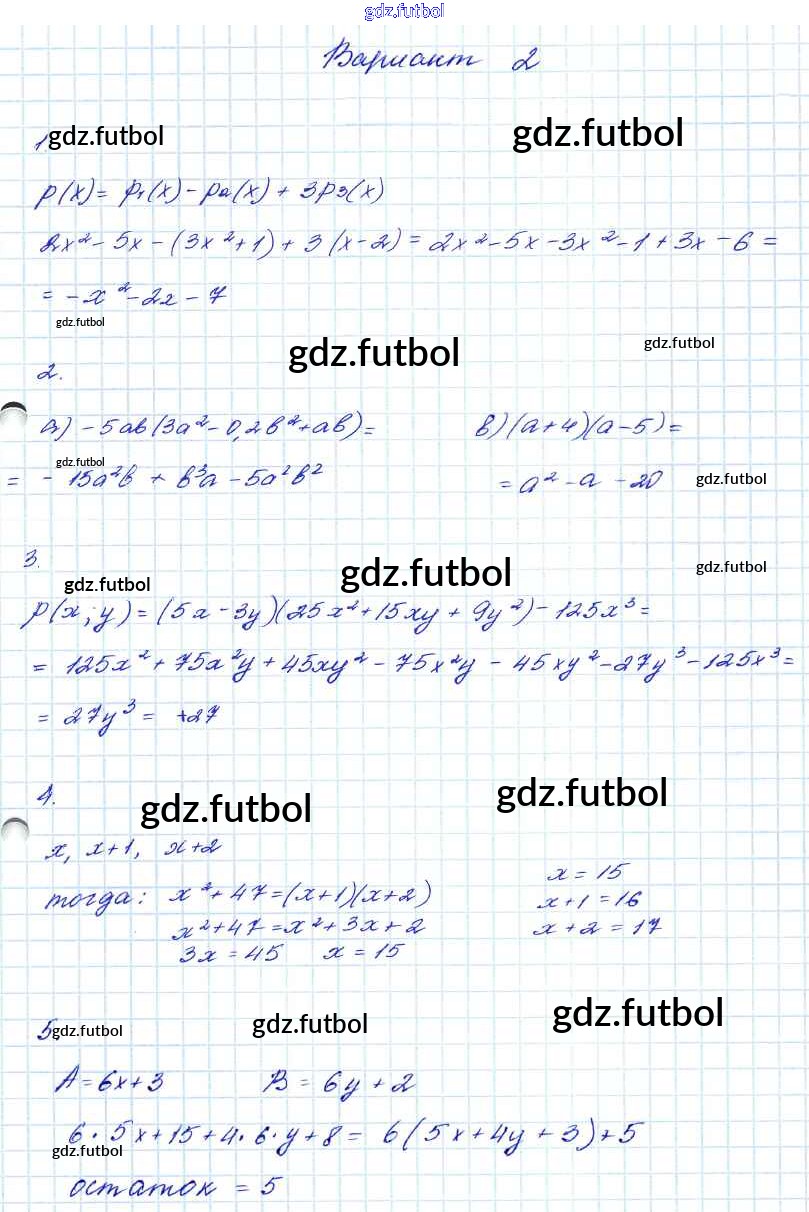 gdz.futbol
Вариант 2
1 gdz.futbol gdz.futbol
p(x) = p1(x) - p2(x) + 3p3(x)
2x² - 5x - (3x² + 1) + 3(x - 2) = 2x² - 5x - 3x² - 1 + 3x - 6 =
= - x² - 2x - 7
gdz.futbol gdz.futbol gdz.futbol
2.
а) - 5ab(3a² - 0,2b² + ab) = в) (a + 4)(a - 5) =
gdz.futbol
= - 15a²b + b³a - 5a²b² = a² - a - 20 gdz.futbol
3.
gdz.futbol gdz.futbol gdz.futbol
p(x; y) = (5x - 3y)(25x² + 15xy + 9y²) - 125x³ =
= 125x² + 75x²y + 45xy² - 75x²y - 45xy² - 27y³ - 125x³ =
= 27y³ = +27
4.
gdz.futbol gdz.futbol
x, x+1, x+2
тогда: x² + 47 = (x+1)(x+2) x = 15
x² + 47 = x² + 3x + 2 x + 1 = 16
3x = 45 x = 15 x + 2 = 17
5. gdz.futbol gdz.futbol gdz.futbol
A = 6x + 3 B = 6y + 2
6 · 5x + 15 + 4 · 6 · y + 8 = 6(5x + 4y + 3) + 5
gdz.futbol
остаток = 5